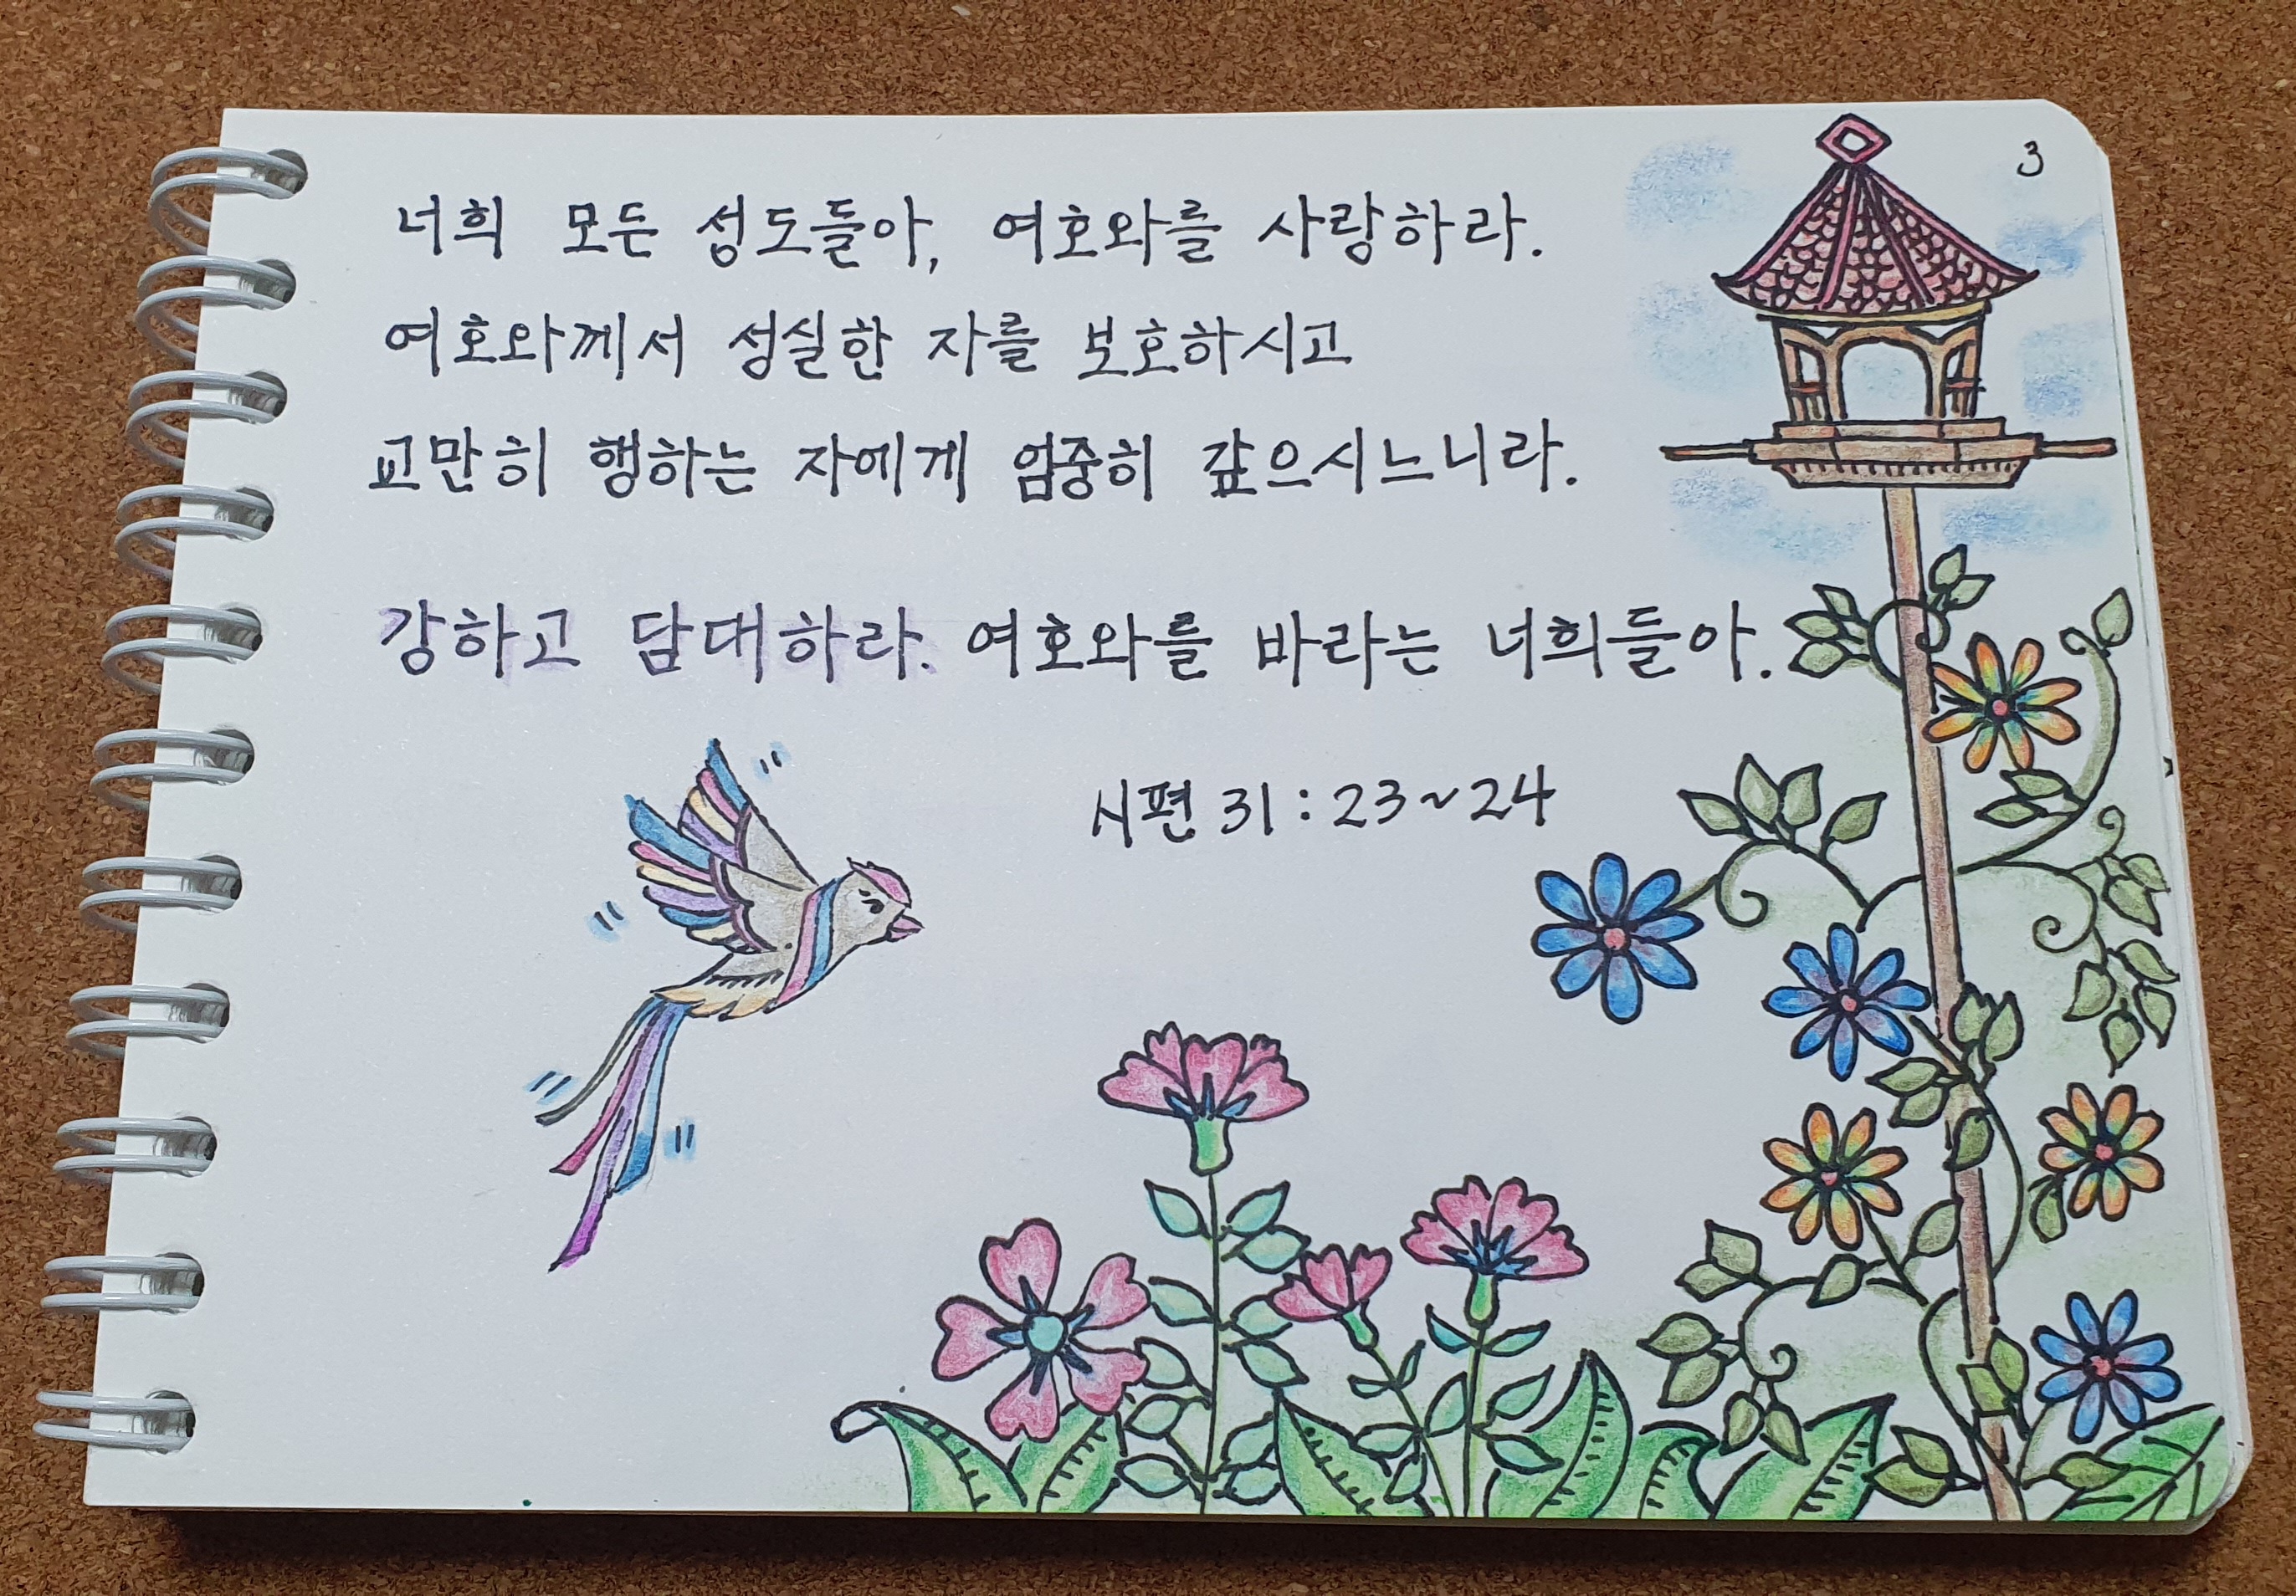 3
너희 모든 성도들아, 여호와를 사랑하라.
여호와께서 성실한 자를 보호하시고
교만히 행하는 자에게 엄중히 갚으시느니라.
강하고 담대하라. 여호와를 바라는 너희들아.
시편 31:23~24